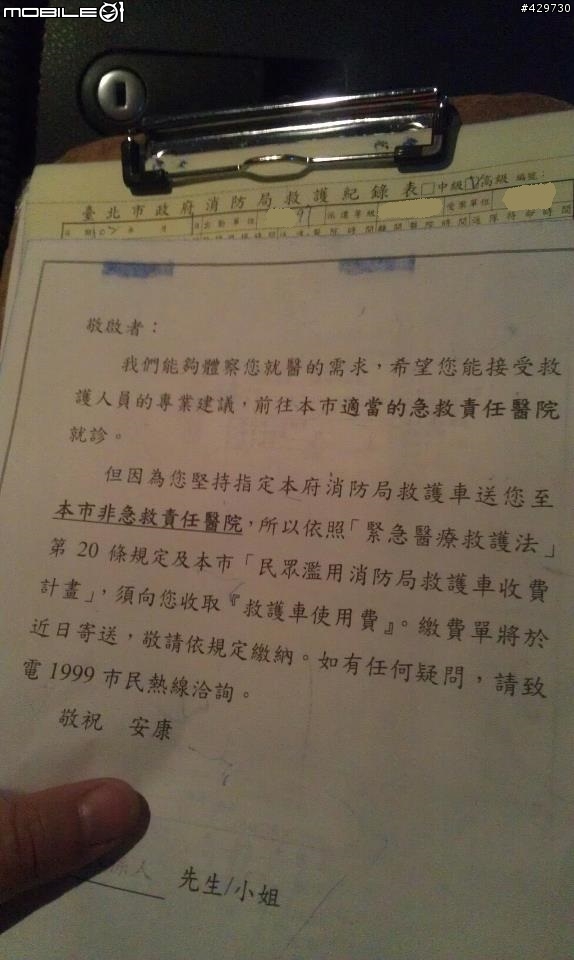 MOBILE01
#429730
臺北市政府消防局救護紀錄表□中級☑高級 編號：
日期 102 年 月 出勤單位 91 派遣等級 受案單位
敬啟者：
我們能夠體察您就醫的需求，希望您能接受救
護人員的專業建議，前往本市適當的急救責任醫院
就診。
但因為您堅持指定本府消防局救護車送您至
本市非急救責任醫院，所以依照「緊急醫療救護法」
第 20 條規定及本市「民眾濫用消防局救護車收費
計畫」，須向您收取『救護車使用費』。繳費單將於
近日寄送，敬請依規定繳納。如有任何疑問，請致
電 1999 市民熱線洽詢。
敬祝 安康
先生/小姐